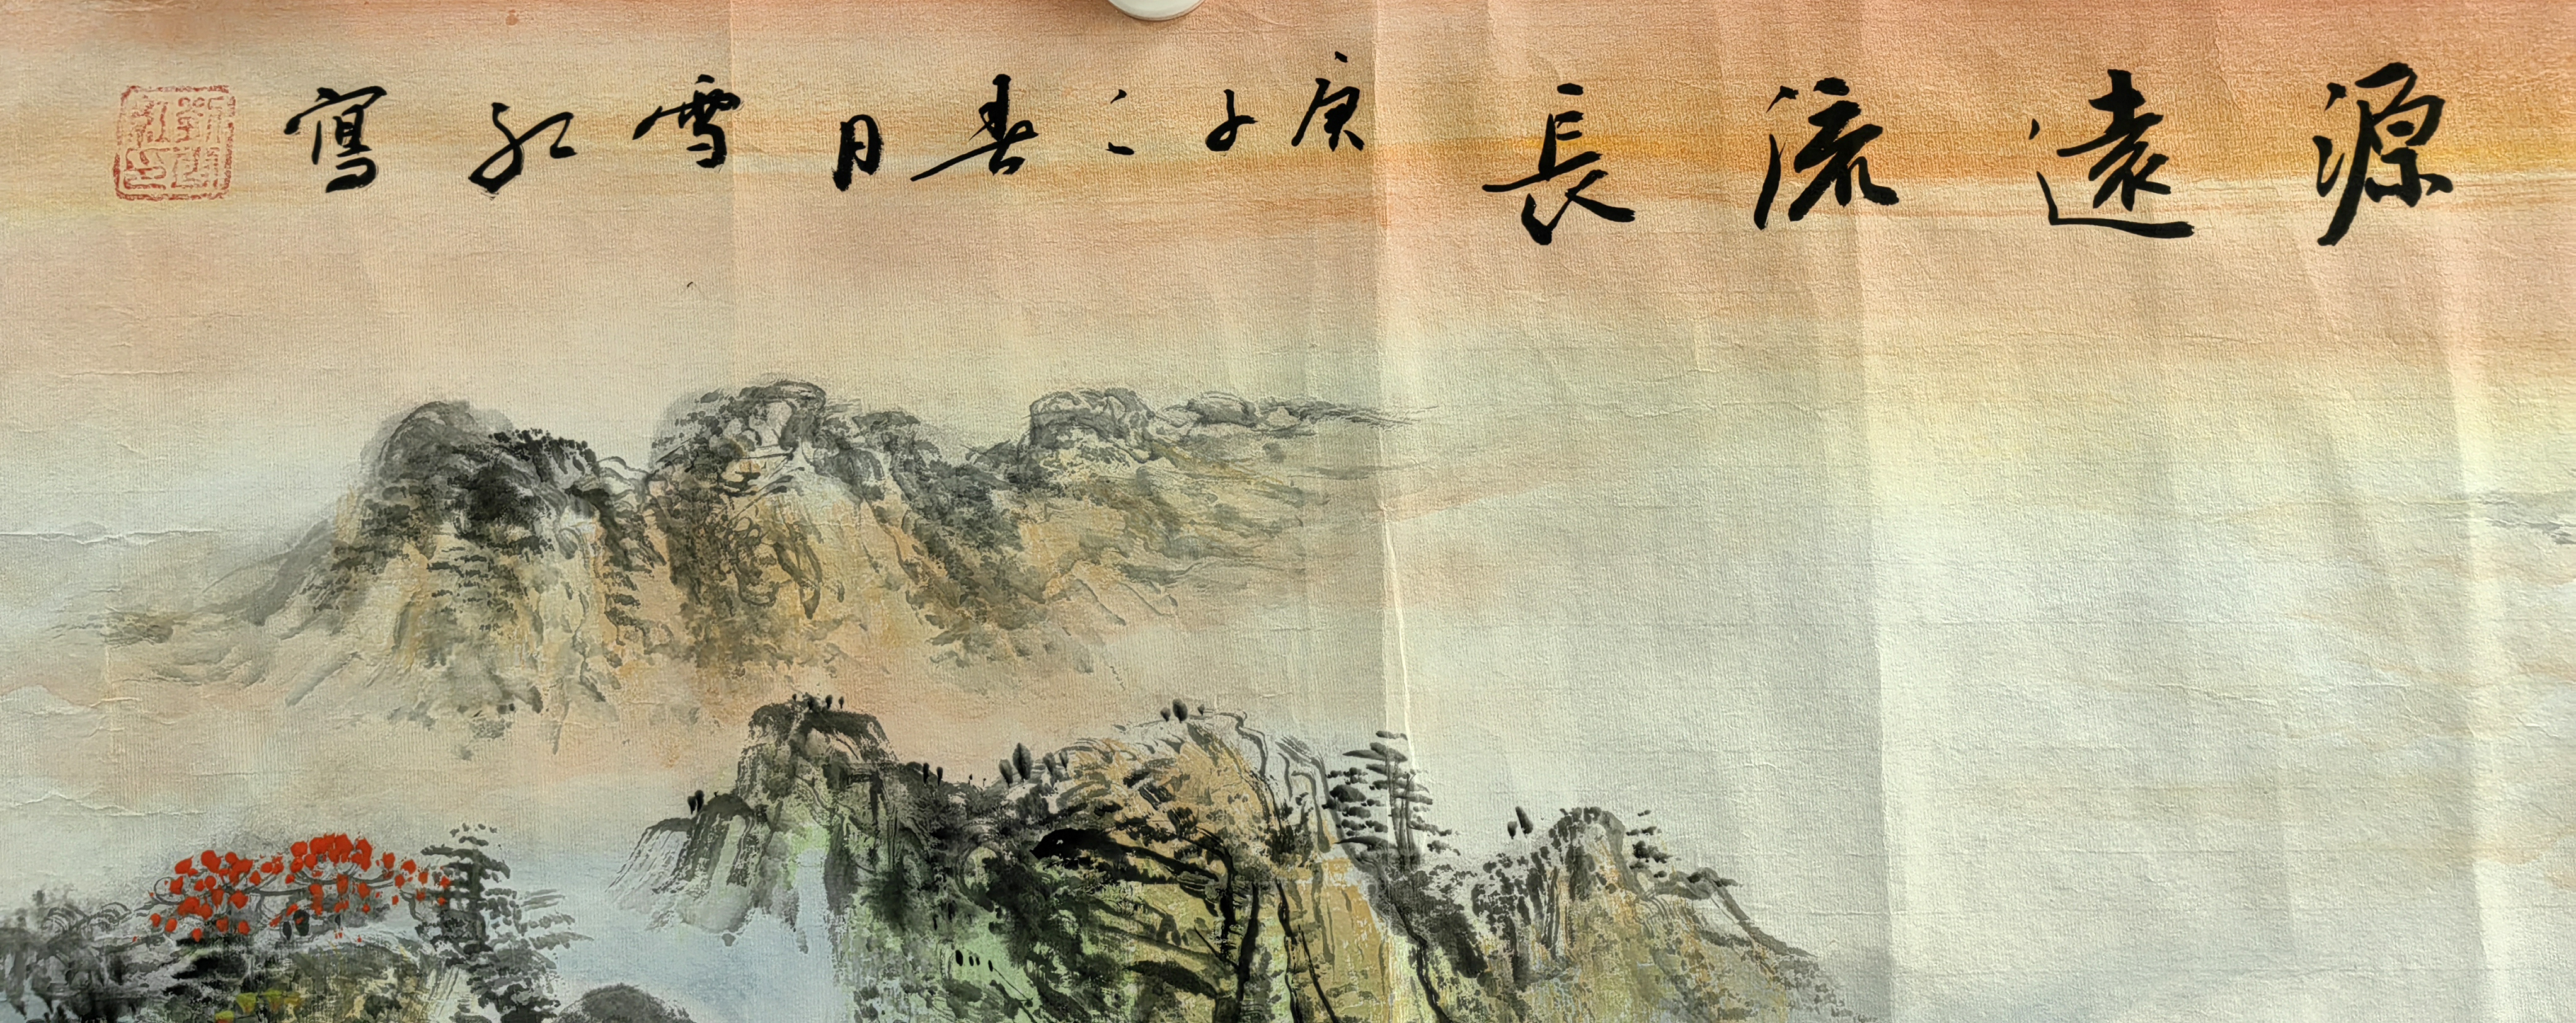 源遠流長 庚子之春月雪红寫